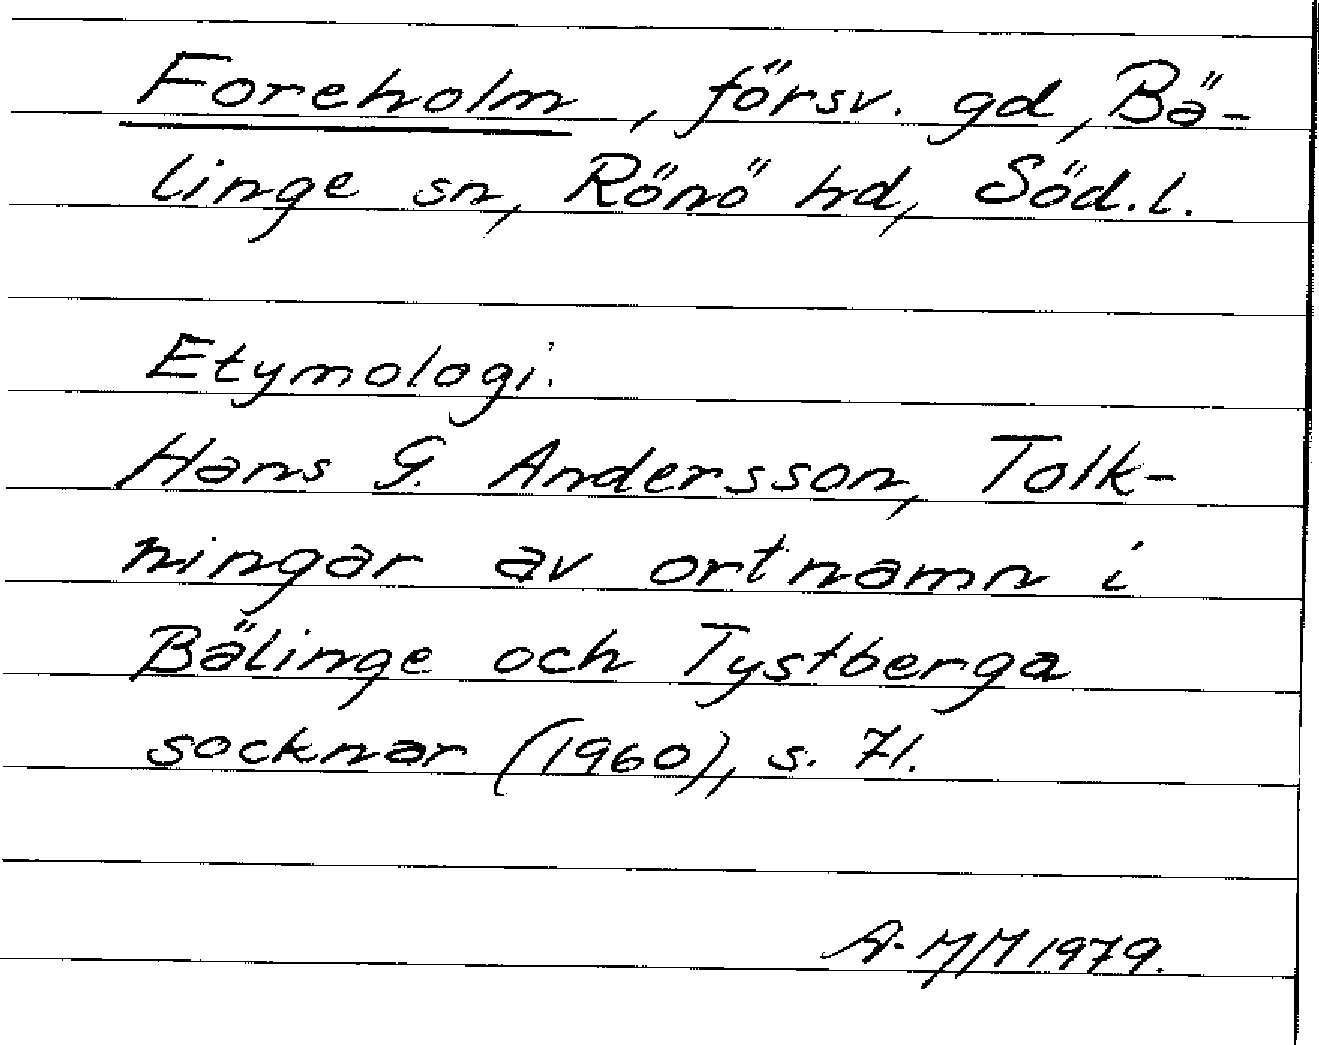 Foreholm, försv. gd, Bä-
linge sn, Rönö hd, Söd.l.
Etymologi:
Hans G. Andersson, Tolk-
ningar av ortnamn i
Bälinge och Tystberga
socknar (1960), s. 71.
A-MM 1979.